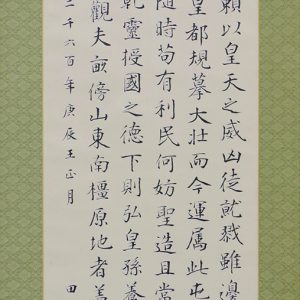 賴以皇天之威凶徒就戮雖邊
皇都規摹大壯而今運屬此屯
隨時苟有利民何妨聖造且當
乾靈授國之德下則弘皇孫養
觀夫畝傍山東南橿原地者蓋
二千六百年庚辰王正月 田